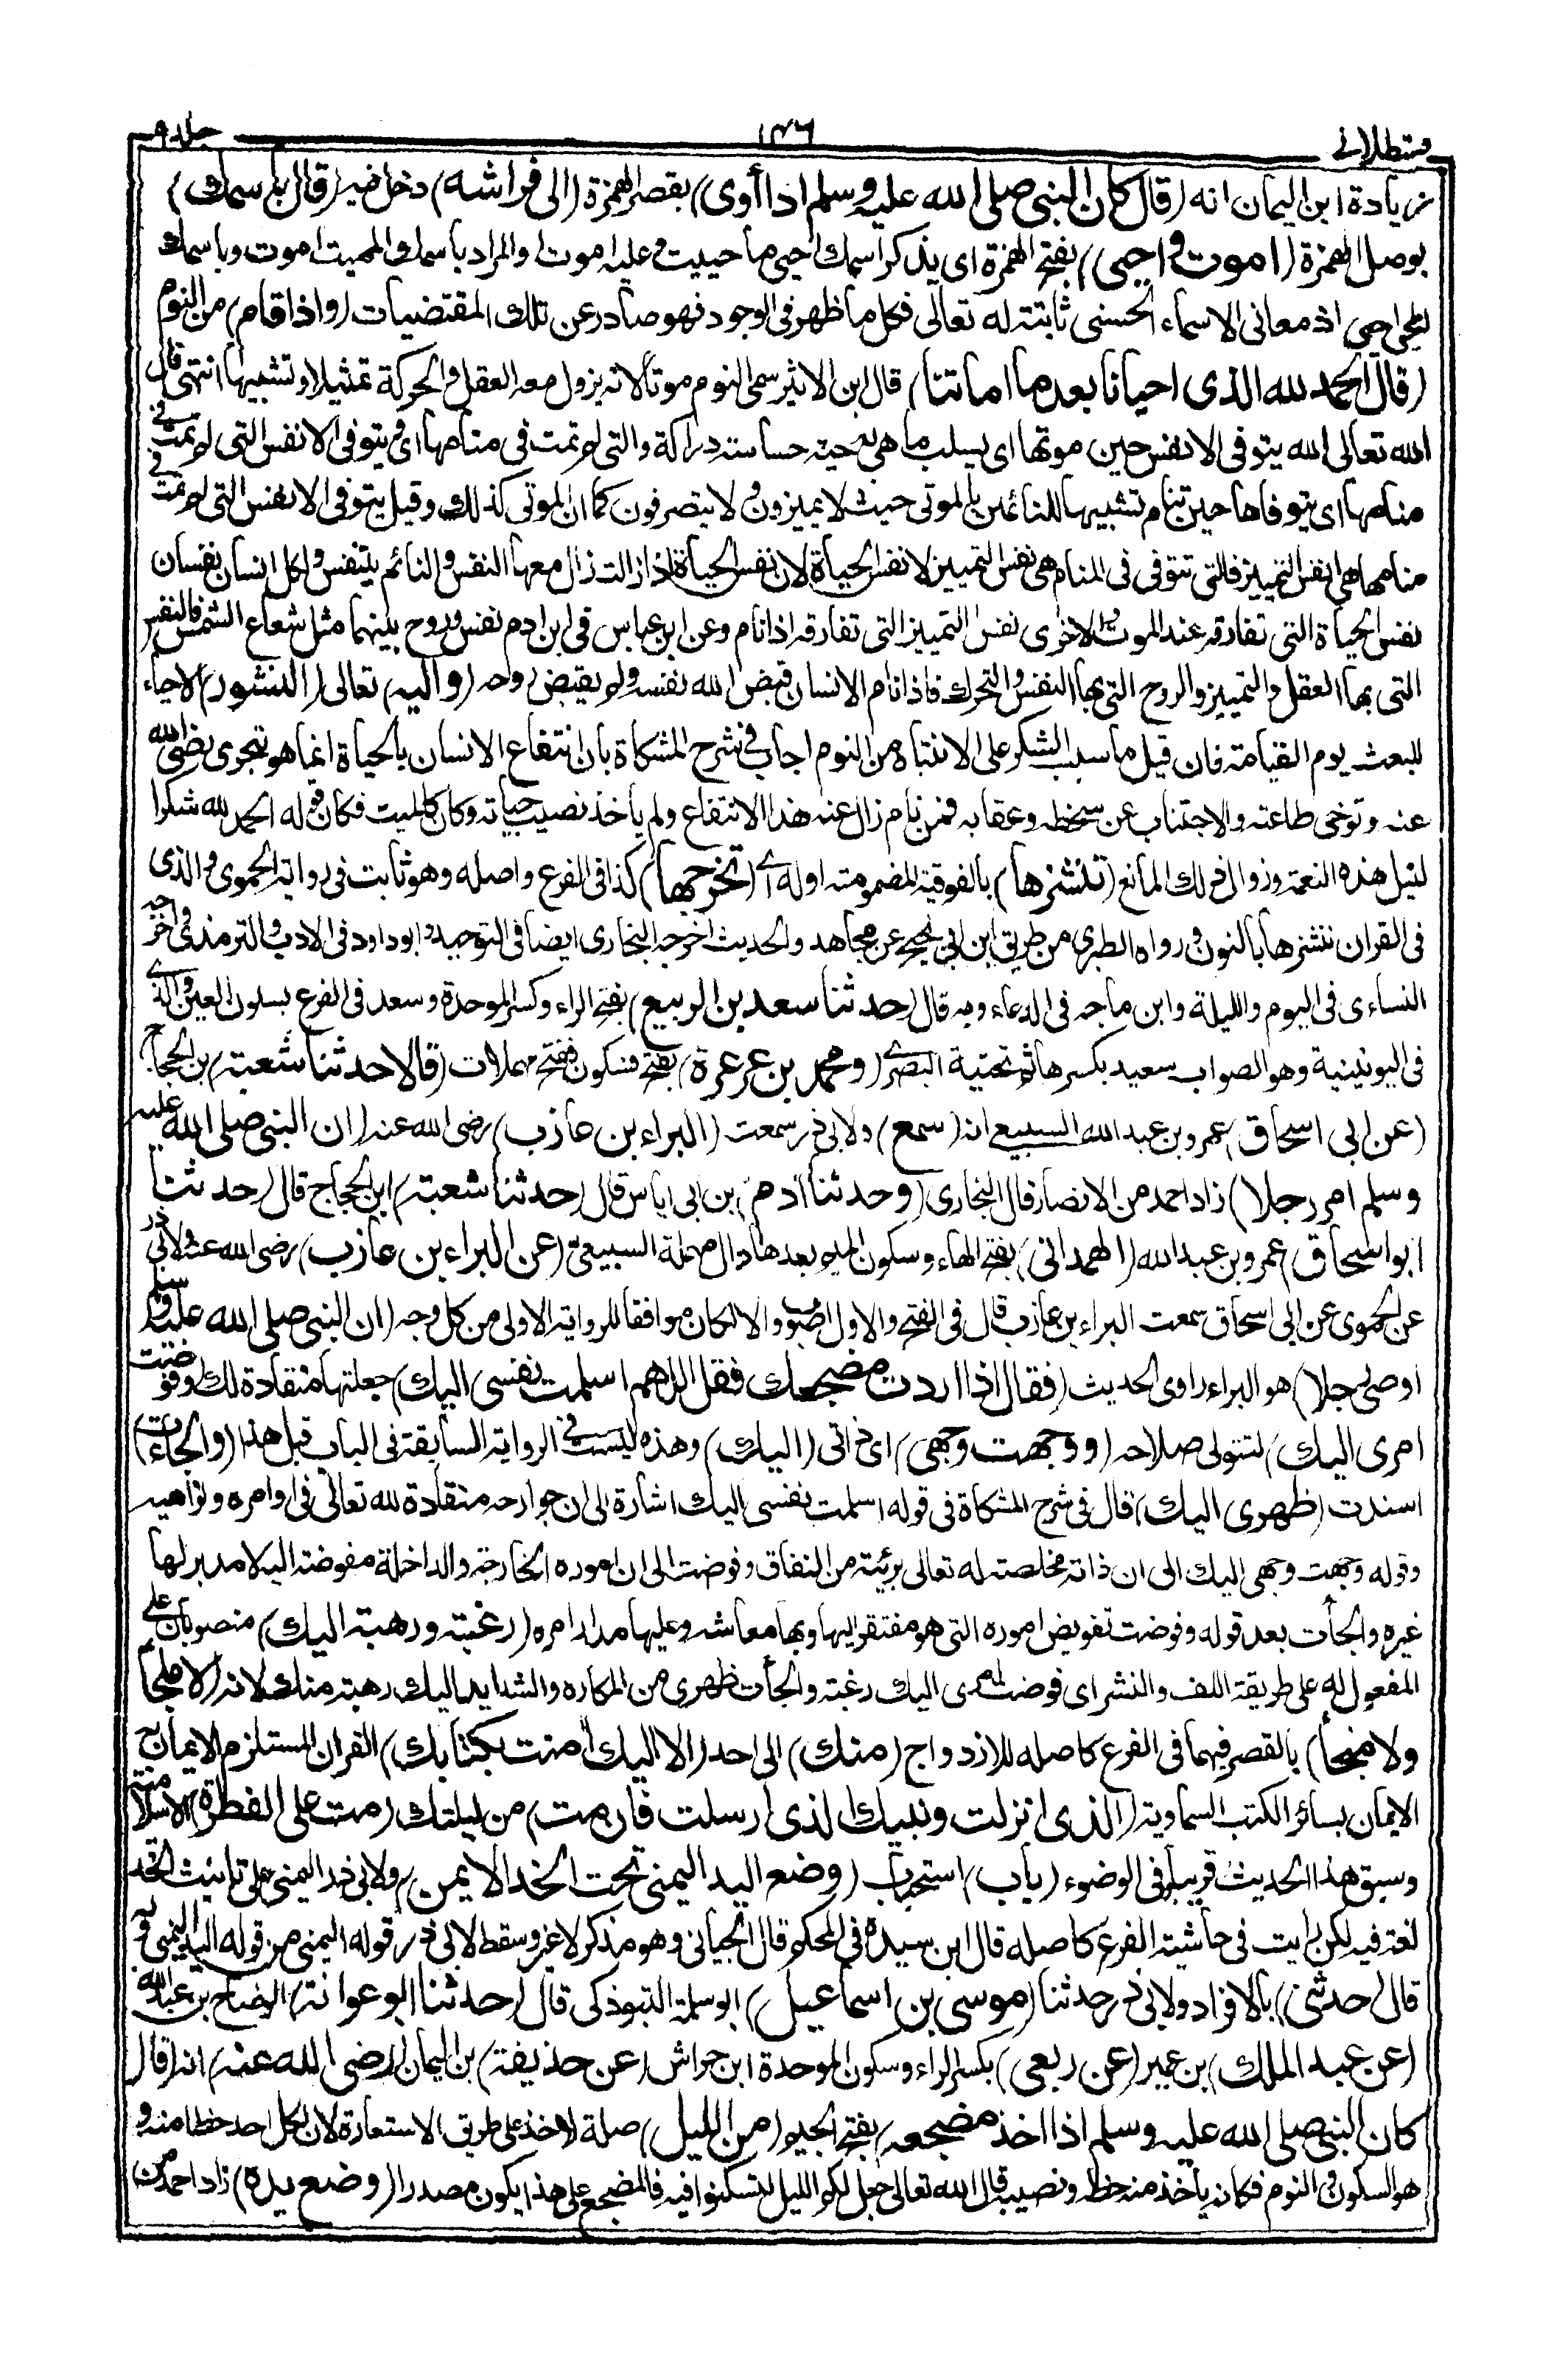 قسطلانی
۱۴۶
جلد ۹
زيادة ابن اليمان انه (قال كان النبي صلى الله عليه وسلم اذا أوى) بقصر الهمزة (الى فراشه) دخل فيه (قال باسمك)
بوصل الهمزة (اموت واحيى) بفتح الهمزة اى بذكر اسمك احيى ما حييت وعليه اموت او المراد باسمك المميت اموت وباسمك
المحيى احيى اذ معانى الاسماء الحسنى ثابتة له تعالى فكل ما ظهر فى الوجود فهو صادر عن تلك المقتضيات (واذا قام) من النوم
(قال الحمد لله الذى احيانا بعد ما اماتنا) قال ابن الاثير سمى النوم موتا لانه يزول معه العقل والحركة تمثيلا وتشبيها انتهى قال
الله تعالى الله يتوفى الانفس حين موتها اى يسلب ما هى به حية حساسة دراكة والتى لم تمت فى منامها اى ويتوفى الانفس التى لم تمت فى
منامها اى يتوفاها حين تنام تشبيها للنائمين بالموتى حيث لا يميزون ولا يتصرفون كما ان الموتى كذلك وقيل يتوفى الانفس التى لم تمت فى
منامها هى انفس التمييز فالتى تتوفى فى المنام هى نفس التمييز لا نفس الحياة لان نفس الحياة اذا زالت زال معها النفس والنائم يتنفس ولكل انسان نفسان
نفس الحياة التى تفارقه عند الموت والاخرى نفس التمييز التى تفارقه اذا نام وعن ابن عباس فى ابن ادم نفس وروح بينهما مثل شعاع الشمس فالنفس
التى بها العقل والتمييز والروح التى بها النفس والتحرك فاذا نام الانسان قبض الله نفسه ولم يقبض روحه (واليه) تعالى (النشور) الاحياء
للبعث يوم القيامة فان قيل ما سبب الشكر على الانتباه من النوم اجاب فى شرح المشكاة بان انتفاع الانسان بالحياة انما هو بتحرى رضى الله
عنه وتوخى طاعته والاجتناب عن سخطه وعقابه فمن نام زال عنه هذا الانتفاع ولم يأخذ نصيب حياته وكان كالميت فكان قوله الحمد لله شكرا
لنيل هذه النعمة وزوال ذلك المانع (تنشزها) بالفوقية المضمومة اوله اى (تخرجها) كذا فى الفرع واصله وهو ثابت فى رواية الحموى والذى
فى القران ننشزها بالنون ورواه الطبرى من طريق ابن ابى نجيح عن مجاهد والحديث اخرجه البخارى ايضا فى التوحيد وابو داود فى الادب والترمذى واخرجه
النساءى فى اليوم والليلة وابن ماجه فى الدعاء وبه قال (حدثنا سعد بن الربيع) بفتح الراء وكسر الموحدة وسعد فى الفرع بسكون العين والذى
فى اليونينية وهو الصواب سعيد بكسرها ثم تحتية البصرى (ومحمد بن عرعرة) بفتح فسكون ففتح مهملات (قالا حدثنا شعبة) بن الحجاج
(عن ابى اسحاق) عمرو بن عبد الله السبيعى انه (سمع) ولابى ذر سمعت (البراء بن عازب) رضى الله عنه (ان النبي صلى الله عليه
وسلم امر رجلا) زاد احمد من الانصار قال البخارى (وحدثنا ادم) بن ابى اياس قال (حدثنا شعبة) ابن الحجاج قال (حدثنا
ابو اسحاق) عمرو بن عبد الله (الهمدانى) بفتح الهاء وسكون الميم بعدها دال مهملة السبيعى (عن البراء بن عازب) رضى الله عنه ولابى ذر
عن الحموى عن ابى اسحاق سمعت البراء بن عازب قال فى الفتح والاول اصوب والا لكان موافقا للرواية الاولى من كل وجه (ان النبي صلى الله عليه وسلم
اوصى رجلا) هو البراء راوى الحديث (فقال اذا اردت مضجعك فقل اللهم اسلمت نفسى اليك) جعلتها منقادة لك (وفوضت
امرى اليك) لتتولى صلاحه (ووجهت وجهى) اى ذاتى (اليك) وهذه ليست فى الرواية السابقة فى الباب قبل هذا (والجأت)
اسندت (ظهرى اليك) قال فى شرح المشكاة فى قوله اسلمت نفسى اليك اشارة الى ان جوارحه منقادة لله تعالى فى اوامره ونواهيه
وقوله وجهت وجهى اليك الى ان ذاته مخلصة له تعالى بريئة من النفاق وفوضت الى ان اموره الخارجة والداخلة مفوضة اليه لا مدبر لها
غيره والجأت بعد قوله وفوضت تفويض اموره التى هو مفتقر اليها وبها معاشه وعليها مدار امره (رغبة ورهبة اليك) منصوبان على
المفعول له على طريقة اللف والنشر اى فوضت امرى اليك رغبة والجأت ظهرى من المكاره والشدايد اليك رهبة منك لانه (لا ملجأ
ولا منجأ) بالقصر فيهما فى الفرع كاصله للازدواج (منك) الى احد (الا اليك امنت بكتابك) القران المستلزم الايمان به
الايمان بسائر الكتب السماوية (الذى انزلت ونبيك الذى ارسلت فان مت) من ليلتك (مت على الفطرة) الاسلامية
وسبق هذا الحديث قريبا وفى الوضوء (باب) استحباب (وضع اليد اليمنى تحت الخد الايمن) ولابى ذر اليمنى على تانيث الخد
لغة فيه لكن رايت فى حاشية الفرع كاصله قال ابن سيده فى المحكم قال اللحيانى وهو مذكر لا غير وسقط لابى ذر قوله اليمنى من قوله اليد اليمنى وبه
قال (حدثنى) بالافراد ولابى ذر حدثنا (موسى بن اسماعيل) ابو سلمة التبوذكى قال (حدثنا ابو عوانة) الوضاح بن عبد الله
(عن عبد الملك) بن عمير (عن ربعى) بكسر الراء وسكون الموحدة ابن حراش (عن حذيفة) بن اليمان (رضى الله عنه) انه (قال
كان النبي صلى الله عليه وسلم اذا اخذ مضجعه) بفتح الجيم (من الليل) صلة لاخذ على طريق الاستعارة لان لكل احد حظا منه و
هو السكون والنوم فكانه يأخذ منه حظه ونصيبه قال الله تعالى جعل لكم الليل لتسكنوا فيه فالمضجع على هذا يكون مصدرا (وضع يده) زاد احمد من